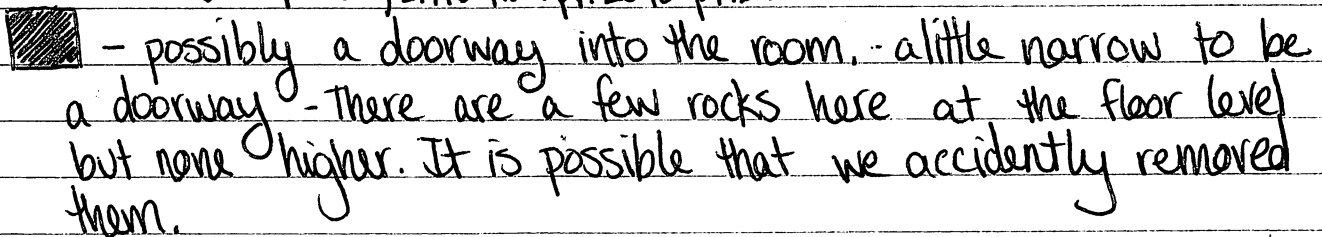 - possibly a doorway into the room. - alittle narrow to be
a doorway - There are a few rocks here at the floor level
but none higher. It is possible that we accidently removed
them.